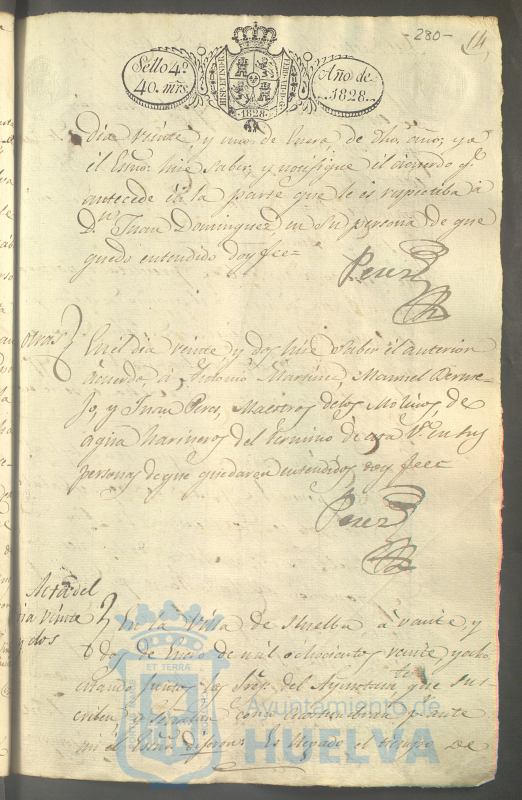 -280-
14
Sello 4º
40. mrs
HISP. ET IND. R.
Año de
1828.
1828
Dia veinte y uno de Enero, de dho. año; yo
el Esno. hice saber, y notifique el acuerdo qe.
antecede en la parte que le es respectiba á
Dn. Juan Dominguez en su persona de que
quedo entendido doy fee=
Perez
otras
En el dia veinte y dos hice saber el anterior
acuerdo á Antonio Martinez, Manuel Berme-
jo, y Juan Peres, Maestros delos Molinos de
agua harineros del termino de esta Va. En sus
personas de que quedaron entendidos doy fee=
Perez
Acta del
dia veinte
y dos
En la Villa de Huelba á veinte y
dos de Enero de mil ochocientos veinte, yocho
estando juntos los Sres. del Ayuntamto. que sus-
criben y señalan como acostumbran p. ante
mi el Esno. dijeron: Es llegado el tiempo de
ET TERRA
Ayuntamiento de
HUELVA